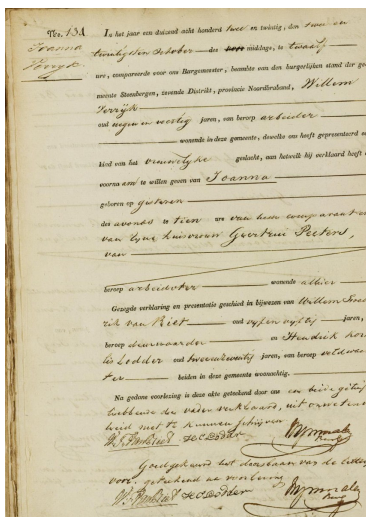 No. 134
Joanna
In het jaar een duizend acht honderd twee en twintig, den twee en
twintigsten October des middags, te twaalf
ure, compareerde voor ons Burgemeester, beambte van den burgerlijken stand der ge
meente Steenbergen, zevende Distrikt, provincie Noordbraband, Willem
oud negen en veertig jaren, van beroep arbeider
wonende in deze gemeente, dewelke ons heeft gepresenteerd een
kind van het vrouwelyke geslacht, aan hetwelk hij verklaard heeft
voornaam te willen geven van Joanna
geboren op gisteren
des avonds te tien ure van hem comparant en
van zyne huisvrouw Geertrui Peeters,
van
beroep arbeidster wonende alhier
Gezegde verklaring en presentatie geschied in bijwezen van Willem
rik van Riet oud vyf en vyftig jaren,
beroep deurwaarder en Hendrik
lis Lodder oud twee en twintig jaren, van beroep veldwach
ter beiden in deze gemeente woonachtig.
Na gedane voorlezing is deze akte geteekend door ons en beide getui
hebbende de vader verklaard, uit onwetend
heid niet te kunnen schrijven
H. C. Lodder
Goedgekeurd het doorslaan van de letter
voor, geteekend na voorlezing
H. C. Lodder